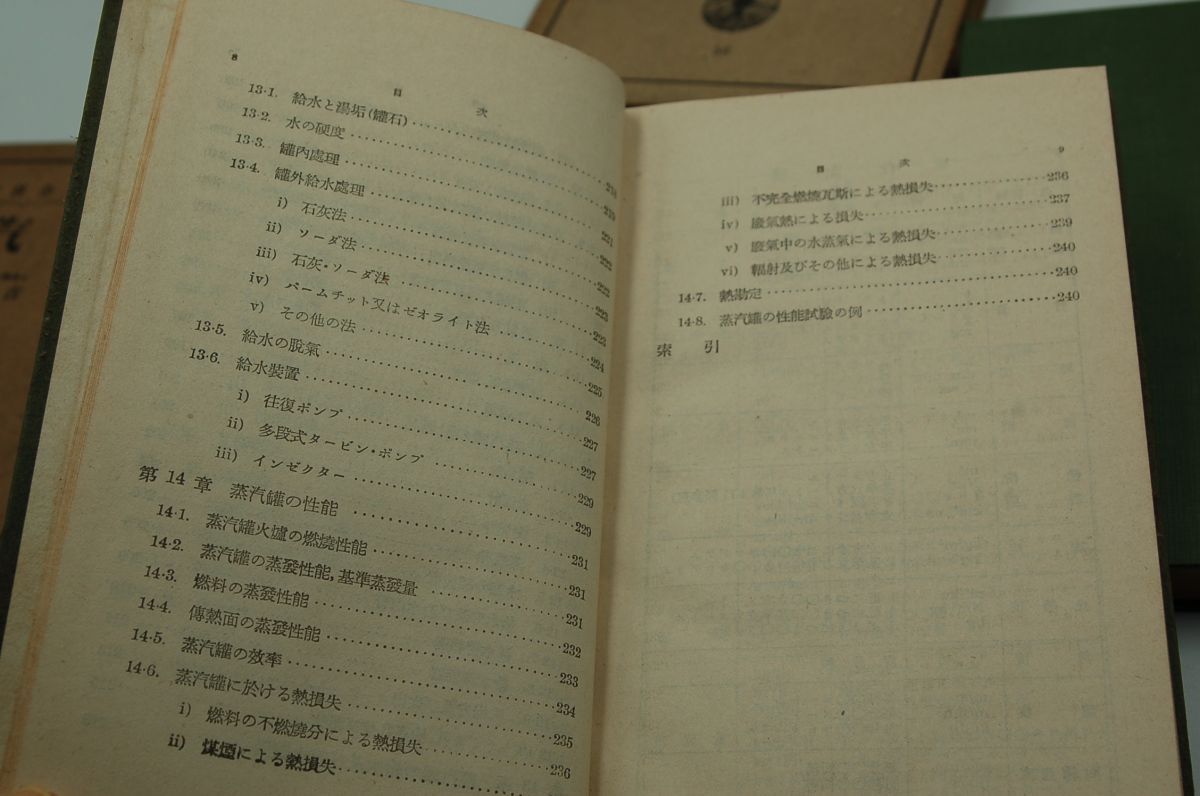 8
目 次
13·1. 給水と湯垢(罐石)
13·2. 水の硬度
13·3. 罐內處理 221
13·4. 罐外給水處理 222
i) 石灰法 222
ii) ソーダ法 223
iii) 石灰・ソーダ法 223
iv) パームチット又はゼオライト法 224
v) その他の法 225
13·5. 給水の脫氣 226
13·6. 給水裝置 227
i) 往復ポンプ 227
ii) 多段式タービン・ポンプ 229
iii) インゼクター 229
第 14 章 蒸汽罐の性能 231
14·1. 蒸汽罐火爐の燃燒性能 231
14·2. 蒸汽罐の蒸發性能, 基準蒸發量 231
14·3. 燃料の蒸發性能 232
14·4. 傳熱面の蒸發性能 233
14·5. 蒸汽罐の效率 234
14·6. 蒸汽罐に於ける熱損失 235
i) 燃料の不燃燒分による熱損失 236
ii) 煤煙による熱損失
目 次
9
iii) 不完全燃燒瓦斯による熱損失 236
iv) 廢氣熱による損失 237
v) 廢氣中の水蒸氣による熱損失 239
vi) 輻射及びその他による熱損失 240
14·7. 熱勘定 240
14·8. 蒸汽罐の性能試驗の例 240
索 引